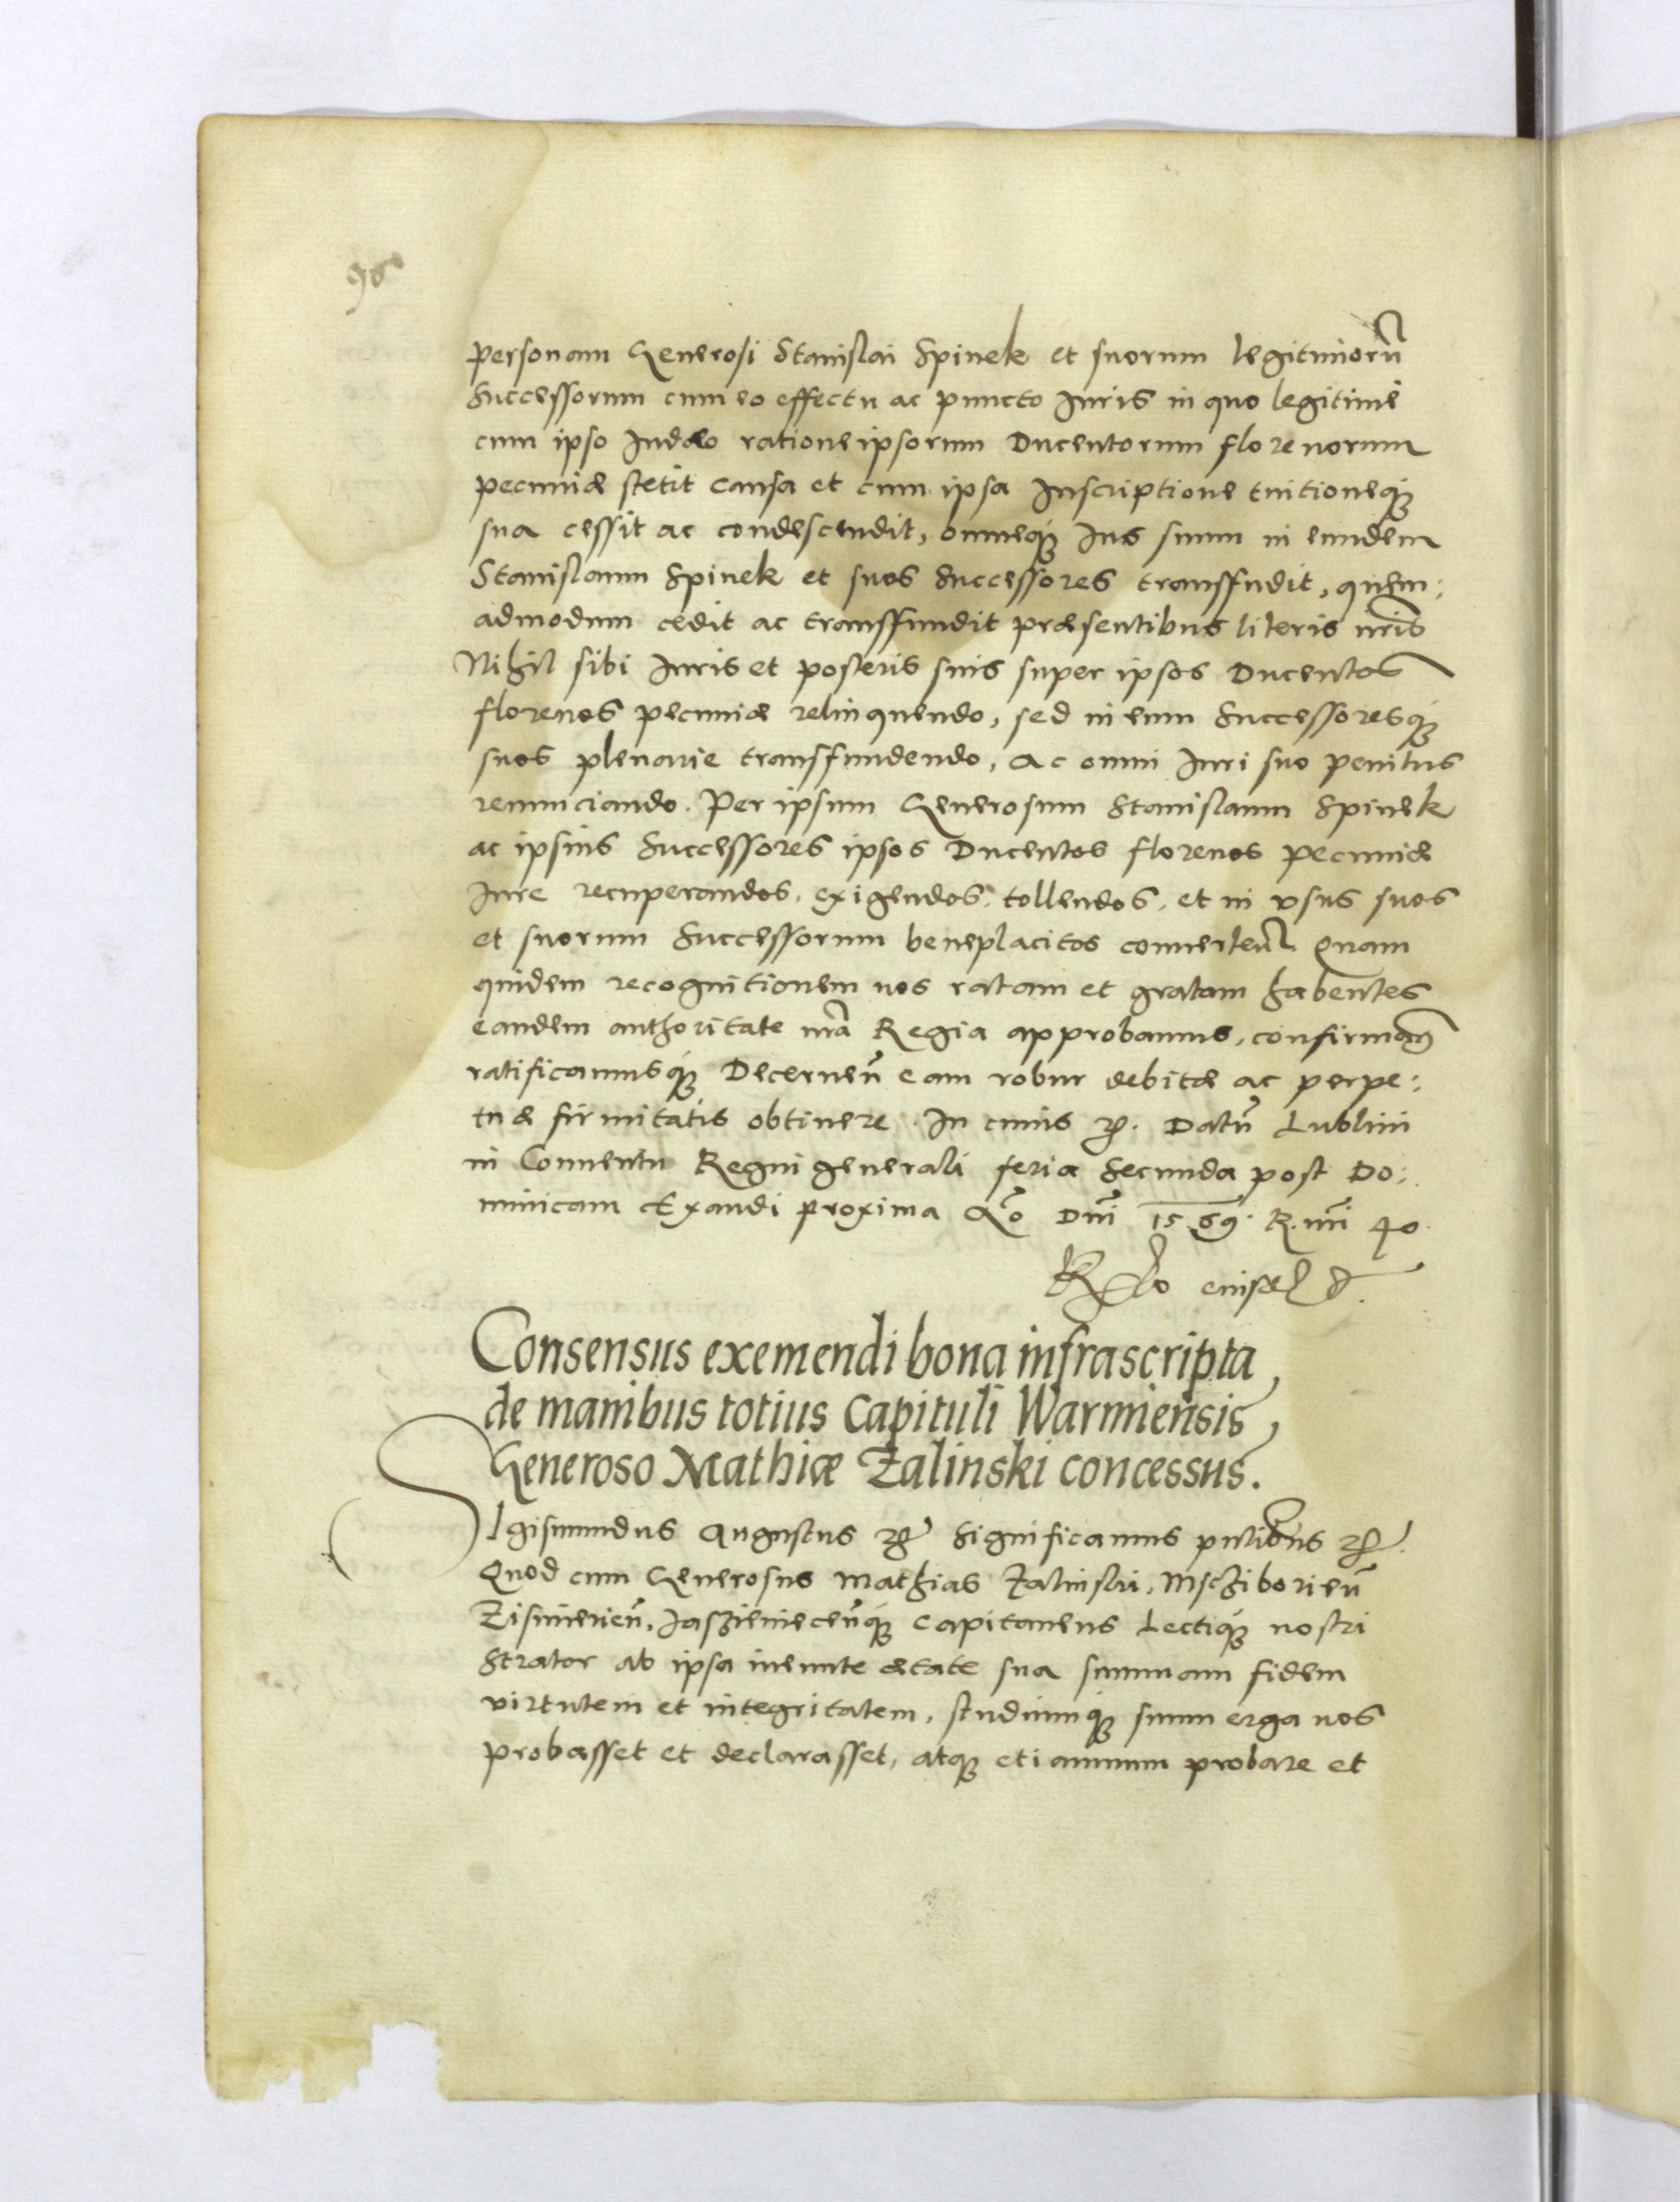 96
personam Generosi Stanislai Spinek et suorum legitimorū
Successorum cum eo effectu ac puncto Iuris in quo legitime
cum ipso Iudæo ratione ipsorum Ducentorum florenorum
pecuniæ stetit causa et cum ipsa Inscriptione tuitioneq́ꝫ
sua cessit ac condescendit, omneq́ꝫ Ius suum in eundem
Stanislaum Spinek et suos Successores transffudit, quem:
admodum cedit ac transffundit præsentibus literis nr̄is
Nihil sibi Iuris et posteris suis super ipsos Ducentos
florenos pecuniæ relinquendo, sed in eum Successoresq́ꝫ
suos plenarie transfundendo, Ac omni Iuri suo penitus
renunciando. Per ipsum Generosum Stanislaum Spinek
ac ipsius Successores ipsos Ducentos florenos pecuniæ
Iure recuperandos, exigendos, tollendos, et in vsus suos
et suorum Successorum beneplacitos conuerten̄ Quam
quidem recognitionem nos ratam et gratam habentes
eandem authoritate nr̄a Regia approbamus, confirmam̄
ratificamusq́ꝫ Decernen̄ eam robur debitæ ac perpe:
tuæ firmitatis obtinere. In cuius ꝛꝭ. Datū Lublini
in Conuentu Regni generali feria Secunda post Do:
minicam Exaudi proxima Aō Dnī 1569. R. nr̄i 40.
Consensus exemendi bona infrascripta
de manibus totius Capituli Warmiensis,
Generoso Mathiæ Zalinski concessus.
SIgismundus Augustus ꝛꝭ Significamus pn̄tibus ꝛꝭ.
Quod cum Generosus Mathias Zalinski, Mscziborien̄
Zismerien̄, Jasziniecen̄q́ꝫ Capitaneus Lectiq́ꝫ nostri
Strator ab ipsa ineunte ætate sua summam fidem
virtutem et integritatem, studiumq́ꝫ suum erga nos
probasset et declarasset, atqꝫ etiamnum probare et